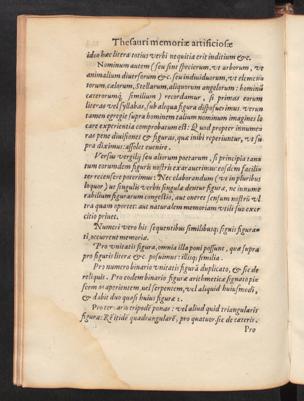 Thesauri memoriæ artificiosæ
idea hæc litera totius verbi nequitia erit inditium &c.
Nominum autem (seu sint specierum, ut arborum, ve
animalium diversorum &c. seu individuorum, ut elemento
rum, cælorum, Stellarum, aliquorum angelorum: hominũ
cæterorumq; similium) recordamur, si primas eorum
literas vel syllabas, sub aliqua figura disposuerimus. verun
tamen egregie supra hominem talium nominum imagines lo
care experientia comprobatum est: Quod propter innume
ras pene divisiones & figuras, quæ inibi reperiuntur, ve su
pra diximus: assolet evenire.
Versus vergilij seu aliorum poetarum, si principia tantu
tum eorumdem figuris nostris exaraverimus: eosdem facili
ter recensere poterimus: Nec elaborandum (ut in pluribus
loquor) ut singulis verbis singula dentur figuræ, ne innume
rabilium figurarum congestio, aut onere sensum nostrũ vl
tra quam oportet: aut naturalem memoriam vitii suo exer
citio privet.
Numeri vero his sequentibus similibusq; signis figura
ti, occurrent memoriæ.
Pro vnitatis figura, omnia illa poni possunt, quæ supra
pro figuris literæ &c. posuimus: illisq; similia.
Pro numero binario vnitatis figurã duplicato, & sic de
reliquis. Pro eodem binario figuræ arithmeticæ signato pi
scem os aperientem, vel serpentem, vel aliquid huiusmodi,
& dabit duo quasi huius figuræ 2.
Pro ternario tripodẽ ponas: vel aliud quid triangularis
figuræ: quadrangularẽ, pro quatuor. sic de cæteris.
Pro